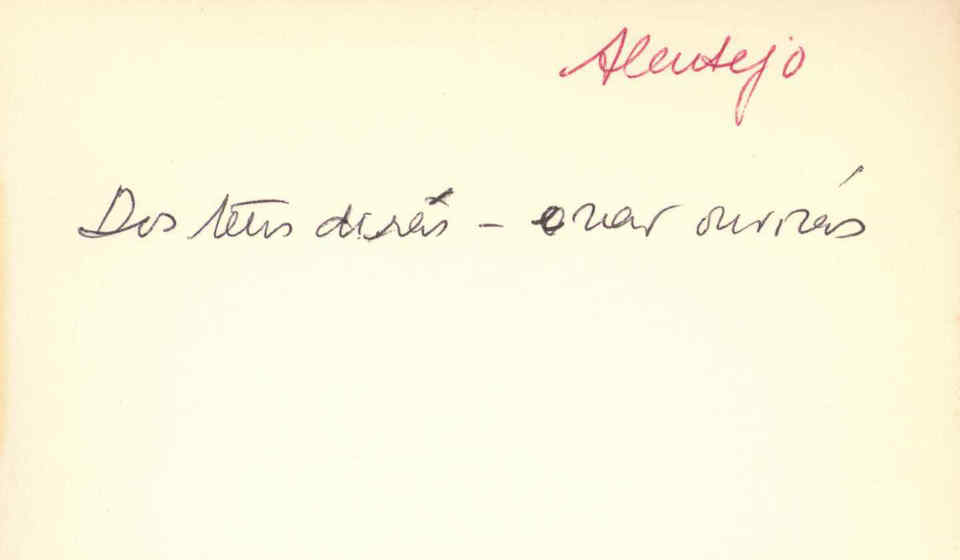 Alentejo
Dos teus dirás – e não ouvirás